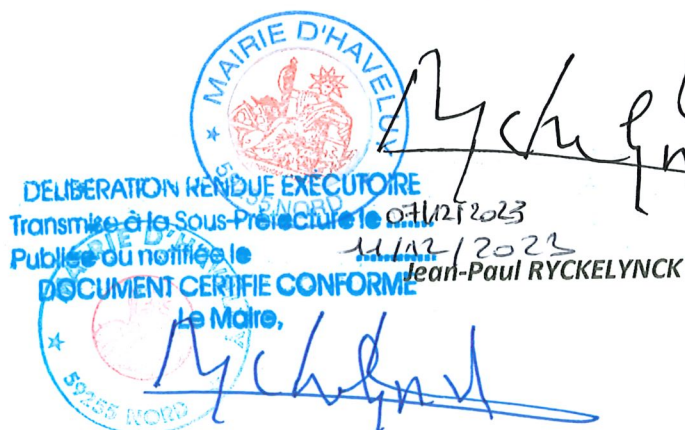 MAIRIE D'HAVELUY
59255 NORD
DELIBERATION RENDUE EXECUTOIRE
Transmise à la Sous-Préfecture le 07/12/2023
Publiée ou notifiée le 11/12/2023
Jean-Paul RYCKELYNCK
DOCUMENT CERTIFIE CONFORME
Le Maire,
MAIRIE D'HAVELUY
59255 NORD